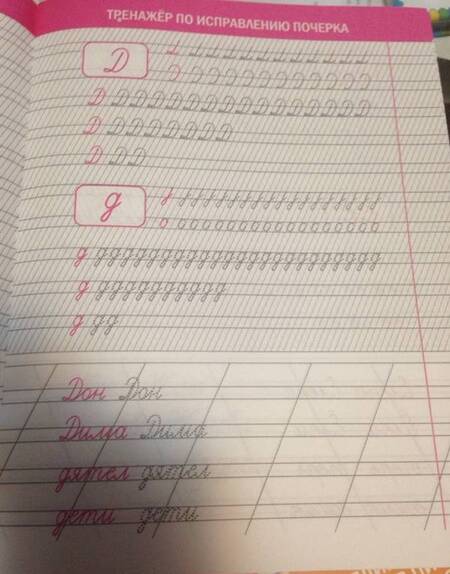 ТРЕНАЖЁР ПО ИСПРАВЛЕНИЮ ПОЧЕРКА
Д
Д Д Д Д Д Д Д Д Д Д Д Д Д Д Д Д
Д Д Д Д Д Д Д Д
Д Д Д
д
о о о о о о о о о о о о о о о о о
д д д д д д д д д д д д д д д д д д д д
д д д д д д д д д д д д
д д д
Дон Дон
Дима Дима
дятел дятел
дети дети